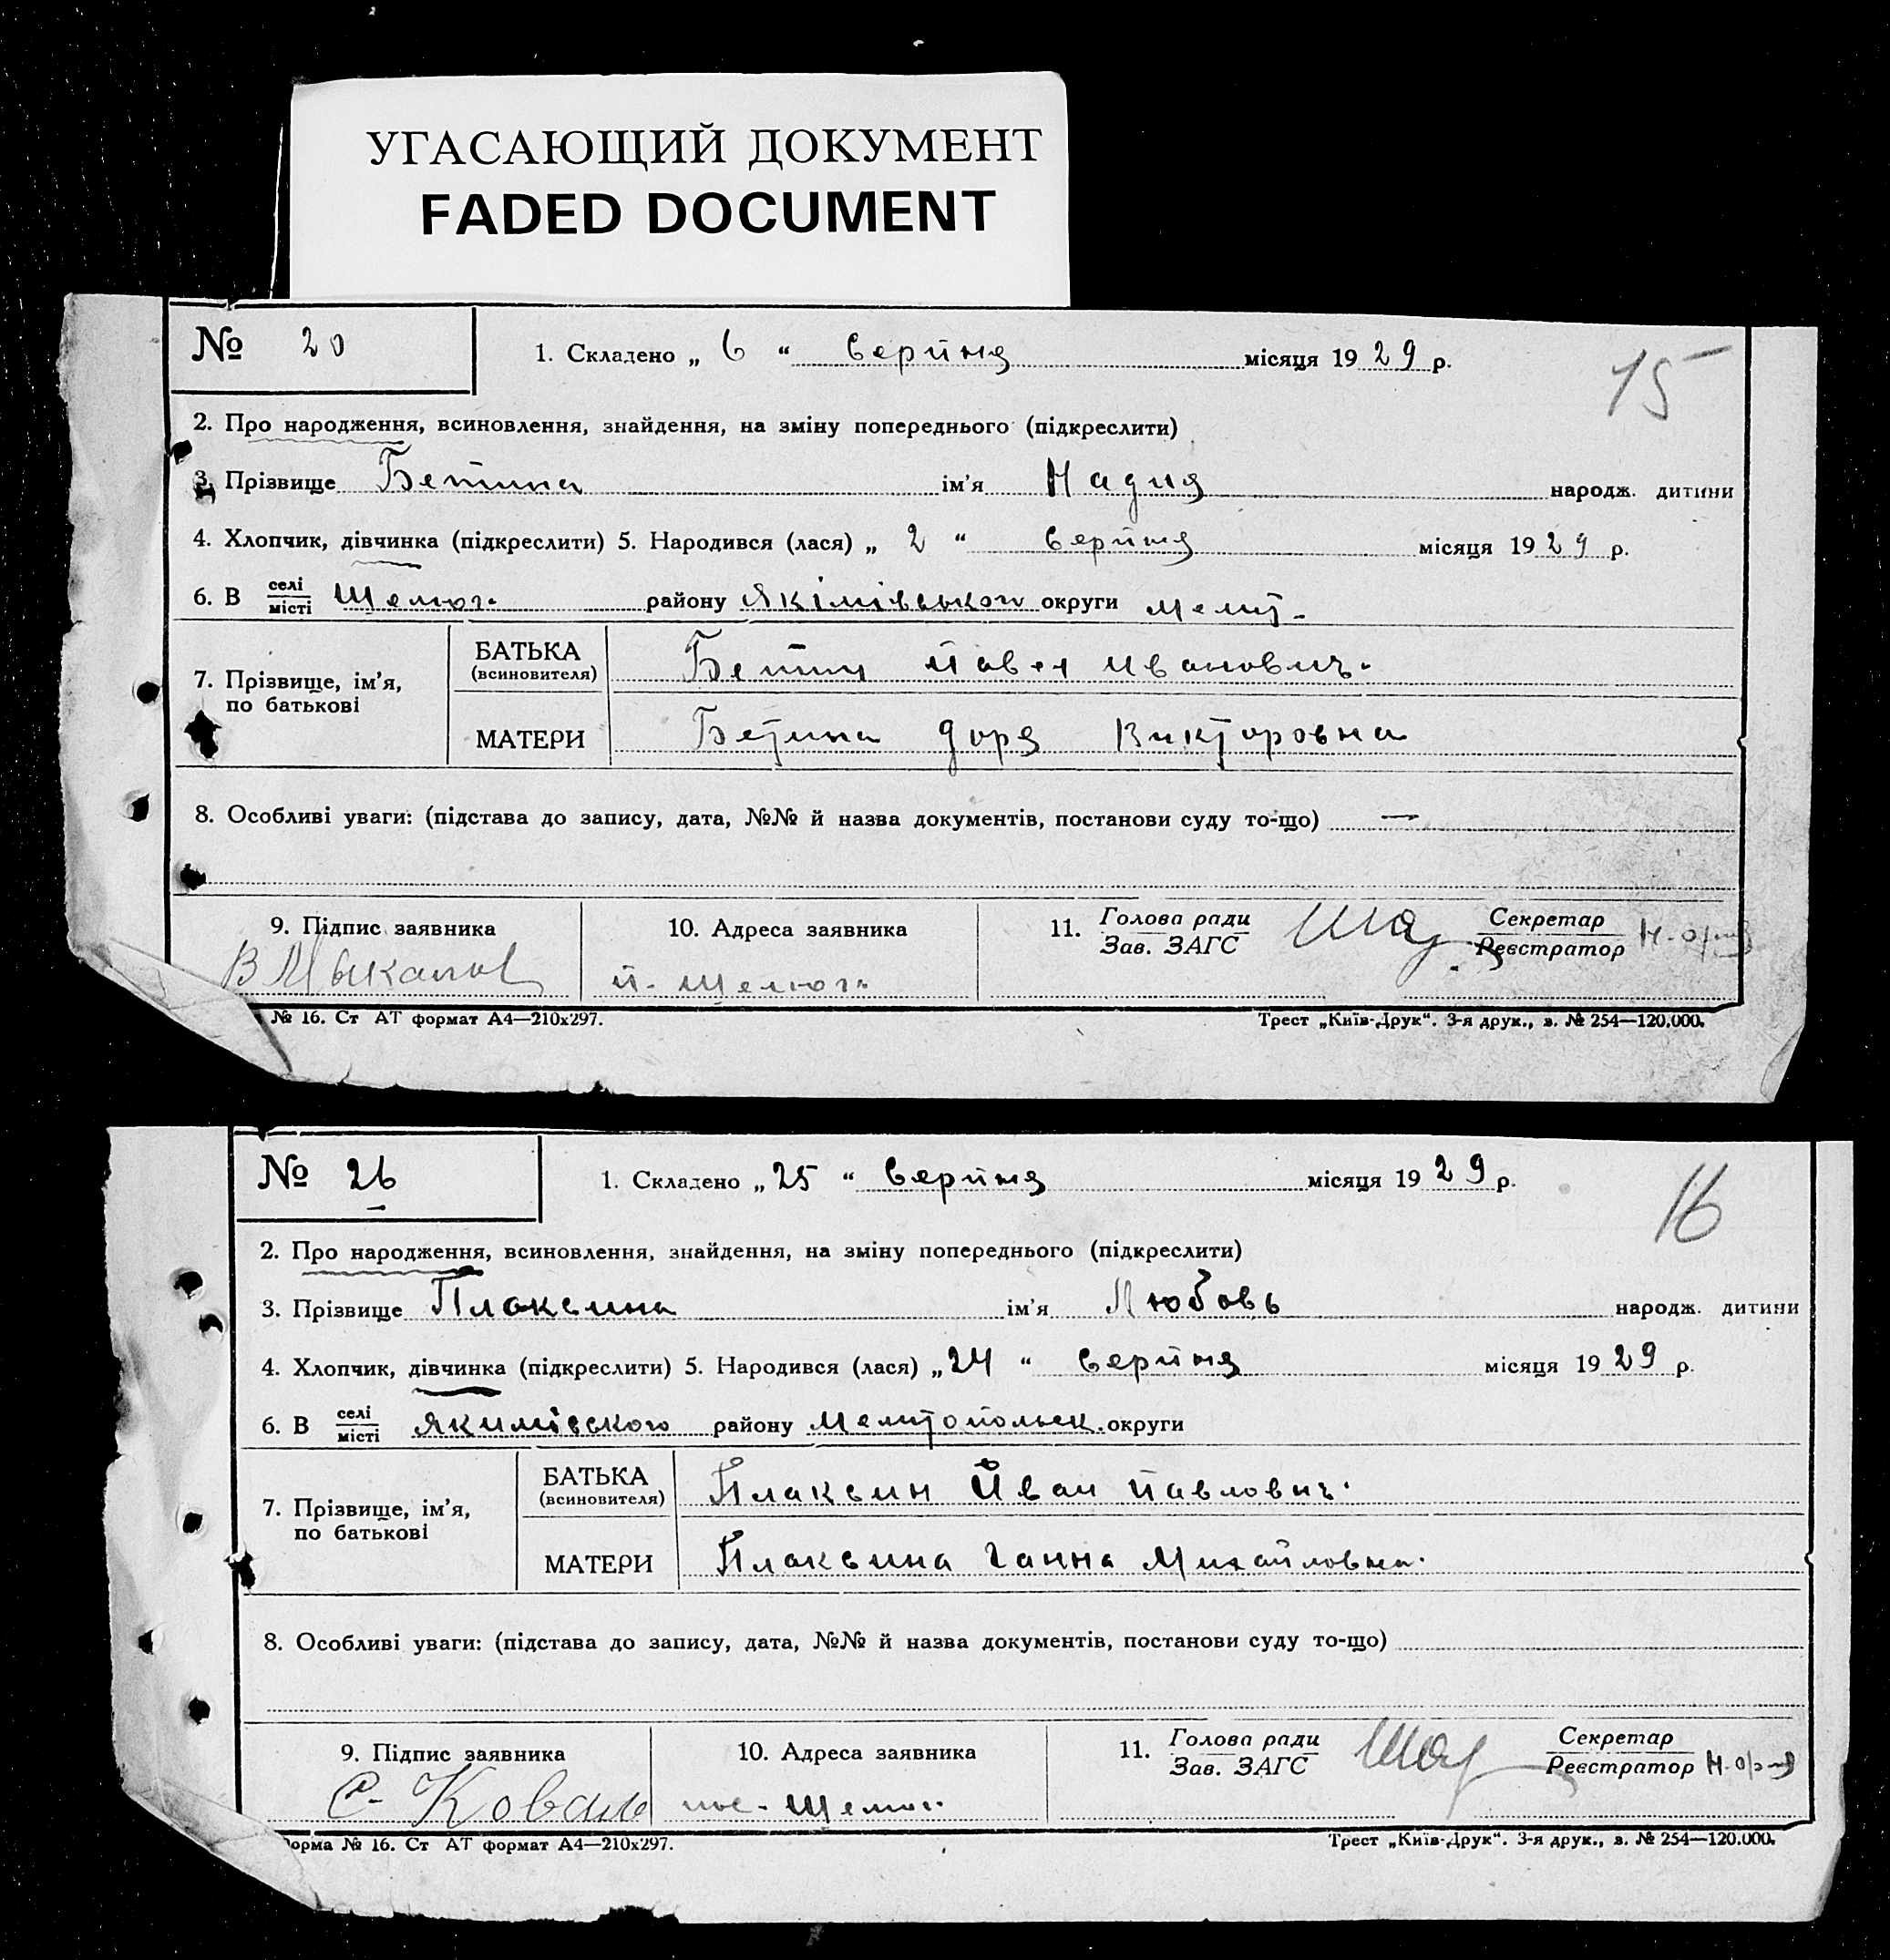 УГАСАЮЩИЙ ДОКУМЕНТ
FADED DOCUMENT
№ 20
1. Складено „ 6 “ серпня місяця 1929 р.
15
2. Про народження, всиновлення, знайдення, на зміну попереднього (підкреслити)
3. Прізвище Бетина ім'я Надия народж. дитини
4. Хлопчик, дівчинка (підкреслити) 5. Народився (лася) „ 2 “ серпня місяця 1929 р.
6. В селі/місті Щелюг. району Якімівського округи Мелит.
7. Прізвище, ім'я, по батькові
БАТЬКА (всиновителя) Бетин Павел Иванович.
МАТЕРИ Бетина Доря Викторовна
8. Особливі уваги: (підстава до запису, дата, №№ й назва документів, постанови суду то-що) —
9. Підпис заявника
10. Адреса заявника
11. Голова ради / Зав. ЗАГС
Секретар / Реєстратор
п. Щелюг.
№ 16. Ст АТ формат А4—210х297.
Трест „Київ-Друк“. 3-я друк., з. № 254—120.000.
№ 26
1. Складено „ 25 “ серпня місяця 1929 р.
16
2. Про народження, всиновлення, знайдення, на зміну попереднього (підкреслити)
3. Прізвище Плаксина ім'я Любовь народж. дитини
4. Хлопчик, дівчинка (підкреслити) 5. Народився (лася) „ 24 “ серпня місяця 1929 р.
6. В селі/місті Якимівського району Мелитопольск. округи
7. Прізвище, ім'я, по батькові
БАТЬКА (всиновителя) Плаксин Иван Павлович.
МАТЕРИ Плаксина Ганна Михайловна.
8. Особливі уваги: (підстава до запису, дата, №№ й назва документів, постанови суду то-що)
9. Підпис заявника
10. Адреса заявника
11. Голова ради / Зав. ЗАГС
Секретар / Реєстратор
С. Коваль
пос. Щелюг.
орма № 16. Ст АТ формат А4—210х297.
Трест „Київ-Друк“. 3-я друк., з. № 254—120.000.